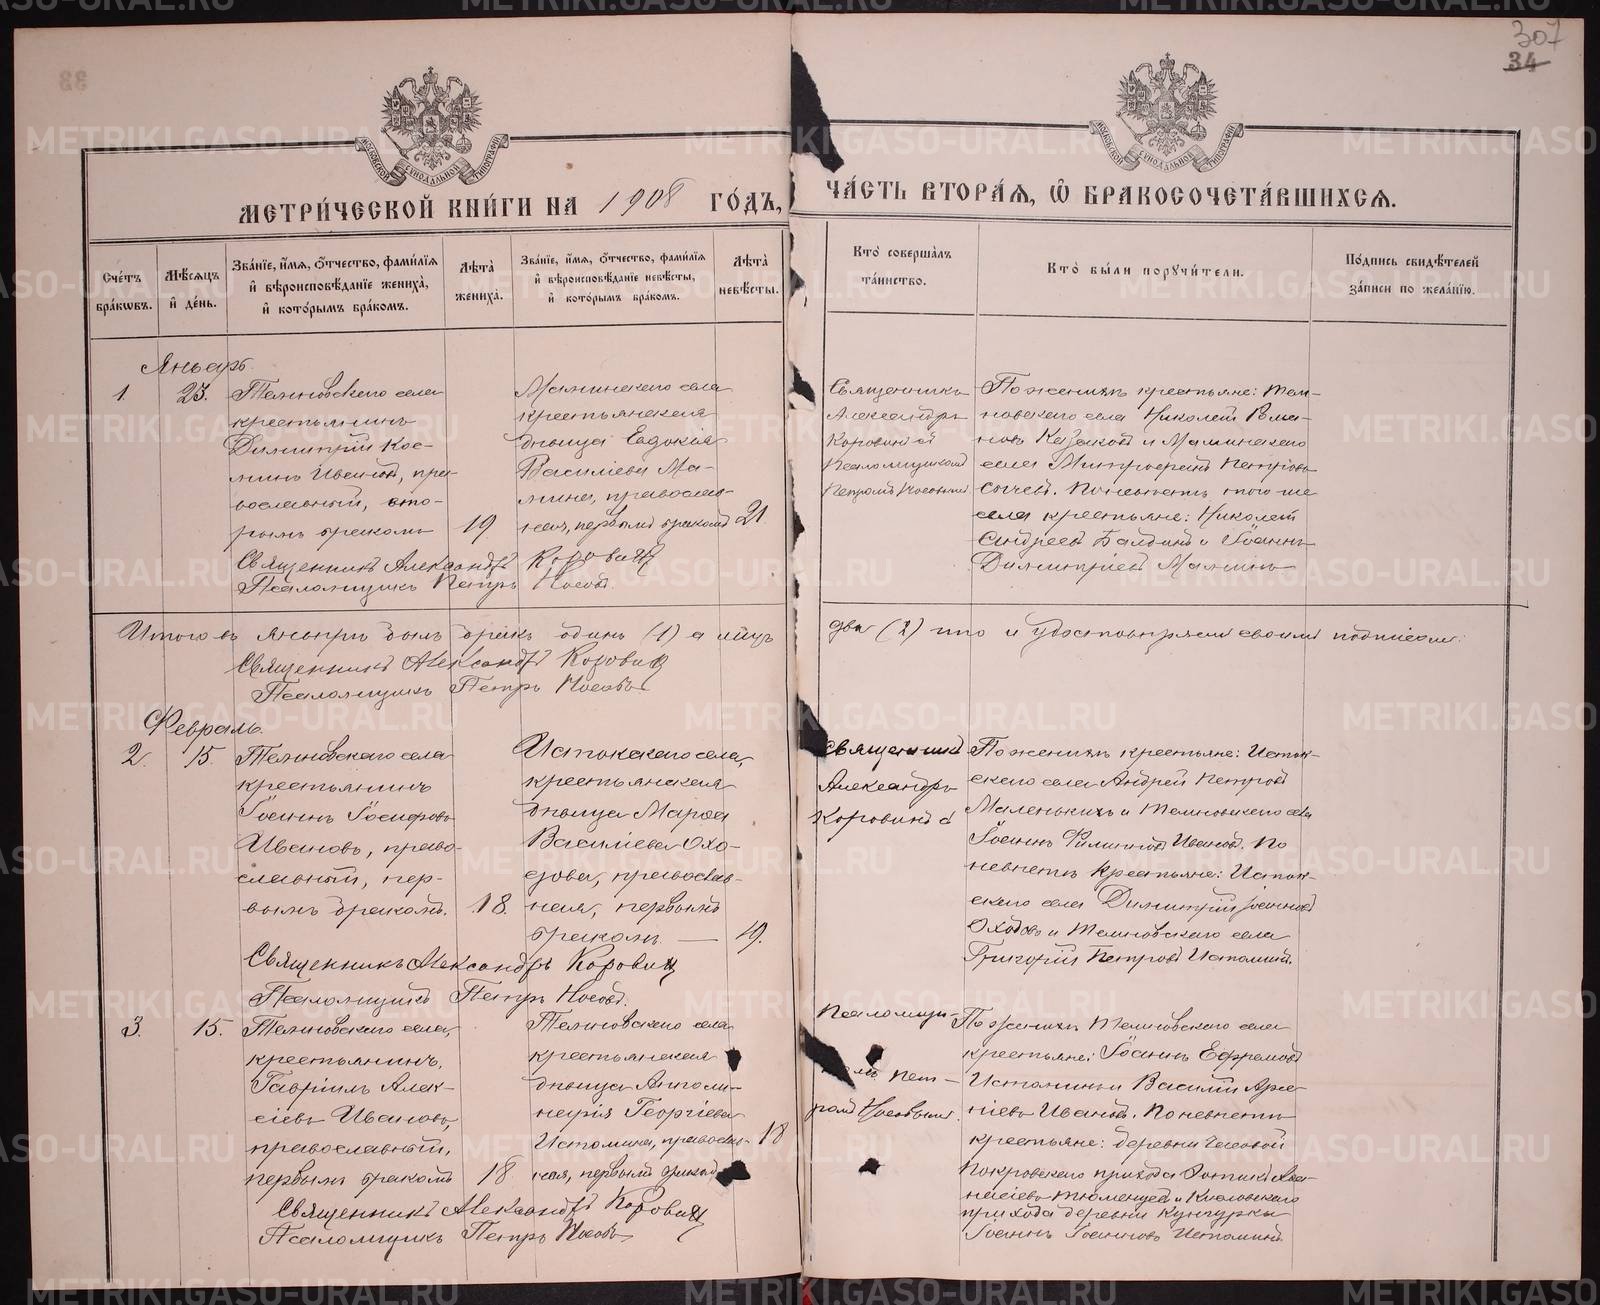 307
34
МЕТРИ́ЧЕСКОЙ КНИ́ГИ НА 1908 ГО́ДЪ,
ЧА́СТЬ ВТОРА́Я, Ѿ БРАКОСОЧЕТА́ВШИХСЯ.
Сче́тъ бра́кѡвъ.
Мѣ́сяцъ и҆ де́нь.
Зва́нїе, и҆́мя, ѻ҆́тчество, фами́лїя
и҆ вѣроисповѣ́данїе жениха̀,
и҆ кото́рымъ бра́комъ.
Лѣ́та жениха̀.
Зва́нїе, и҆́мя, ѻ҆́тчество, фами́лїя
и҆ вѣроисповѣ́данїе невѣ́сты,
и҆ кото́рымъ бра́комъ.
Лѣ́та невѣ́сты.
Кто̀ соверша́лъ
та́инство.
Кто̀ бы́ли порꙋчи́тели.
По́дпись свидѣ́телей
за́писи по жела́нїю.
Январь
1
23.
Темновского села
крестьянинъ
Димитрій Кос-
минъ Ивановъ, пра-
вославный, вто-
рымъ бракомъ
19
Маминского села
крестьянская
дѣвица Евдокія
Василіева Ма-
мина, православ-
ная, первымъ бракомъ
21
Священникъ Александръ Коровинъ
Псаломщикъ Петръ Носовъ.
Священникъ
Александръ
Коровинъ съ
Псаломщикомъ
Петромъ Носовымъ
По женихѣ крестьяне: Тем-
новского села Николай Рома-
новъ Казаковъ и Маминского
села Митрофанъ Петровъ
Сычевъ. По невѣстѣ того же
села крестьяне: Николай
Андреевъ и Іоаннъ
Димитріевъ Маминъ
Итого въ Январѣ былъ бракъ одинъ (1) а лицъ
два (2) что и удостовѣряемъ своими подписами:
Священникъ Александръ Коровинъ
Псаломщикъ Петръ Носовъ
Февраль.
2.
15.
Темновского села
крестьянинъ
Іоаннъ Іосифовъ
Ивановъ, право-
славный, пер-
вымъ бракомъ.
18.
Истокского села,
крестьянская
дѣвица Марѳа
Василіева Охо-
дова, православ-
ная, первымъ
бракомъ —
19.
Священникъ
Александръ
Коровинъ съ
По женихѣ крестьяне: Исток-
ского села Андрей Петровъ
Маленькихъ и Темновского села
Іоаннъ Ивановъ. По
невѣстѣ крестьяне: Исток-
ского села Димитрій Іоанновъ
Оходовъ и Темновского села
Григорій Петровъ Истоминъ.
Священникъ Александръ Коровинъ
Псаломщикъ Петръ Носовъ.
3.
15.
Темновского села,
крестьянинъ,
Гавріилъ Алек-
сіевъ Ивановъ,
православный,
первымъ бракомъ
18
Темновского села
крестьянская
дѣвица Аполи-
нарія Георгіева
Истомина, православ-
ная, первымъ бракомъ
18
Псаломщи-
комъ Пет-
ромъ Носовымъ.
По женихѣ Темновского села
крестьяне: Іоаннъ Ефремовъ
Истоминъ и Василій Арсе-
ніевъ Ивановъ. По невѣстѣ
крестьяне: деревни Часовой
Покровского прихода
Тюменцевъ и Кисловского
прихода деревни Кунгурки
Іоаннъ Іоанновъ Истоминъ.
Священникъ Александръ Коровинъ
Псаломщикъ Петръ Носовъ